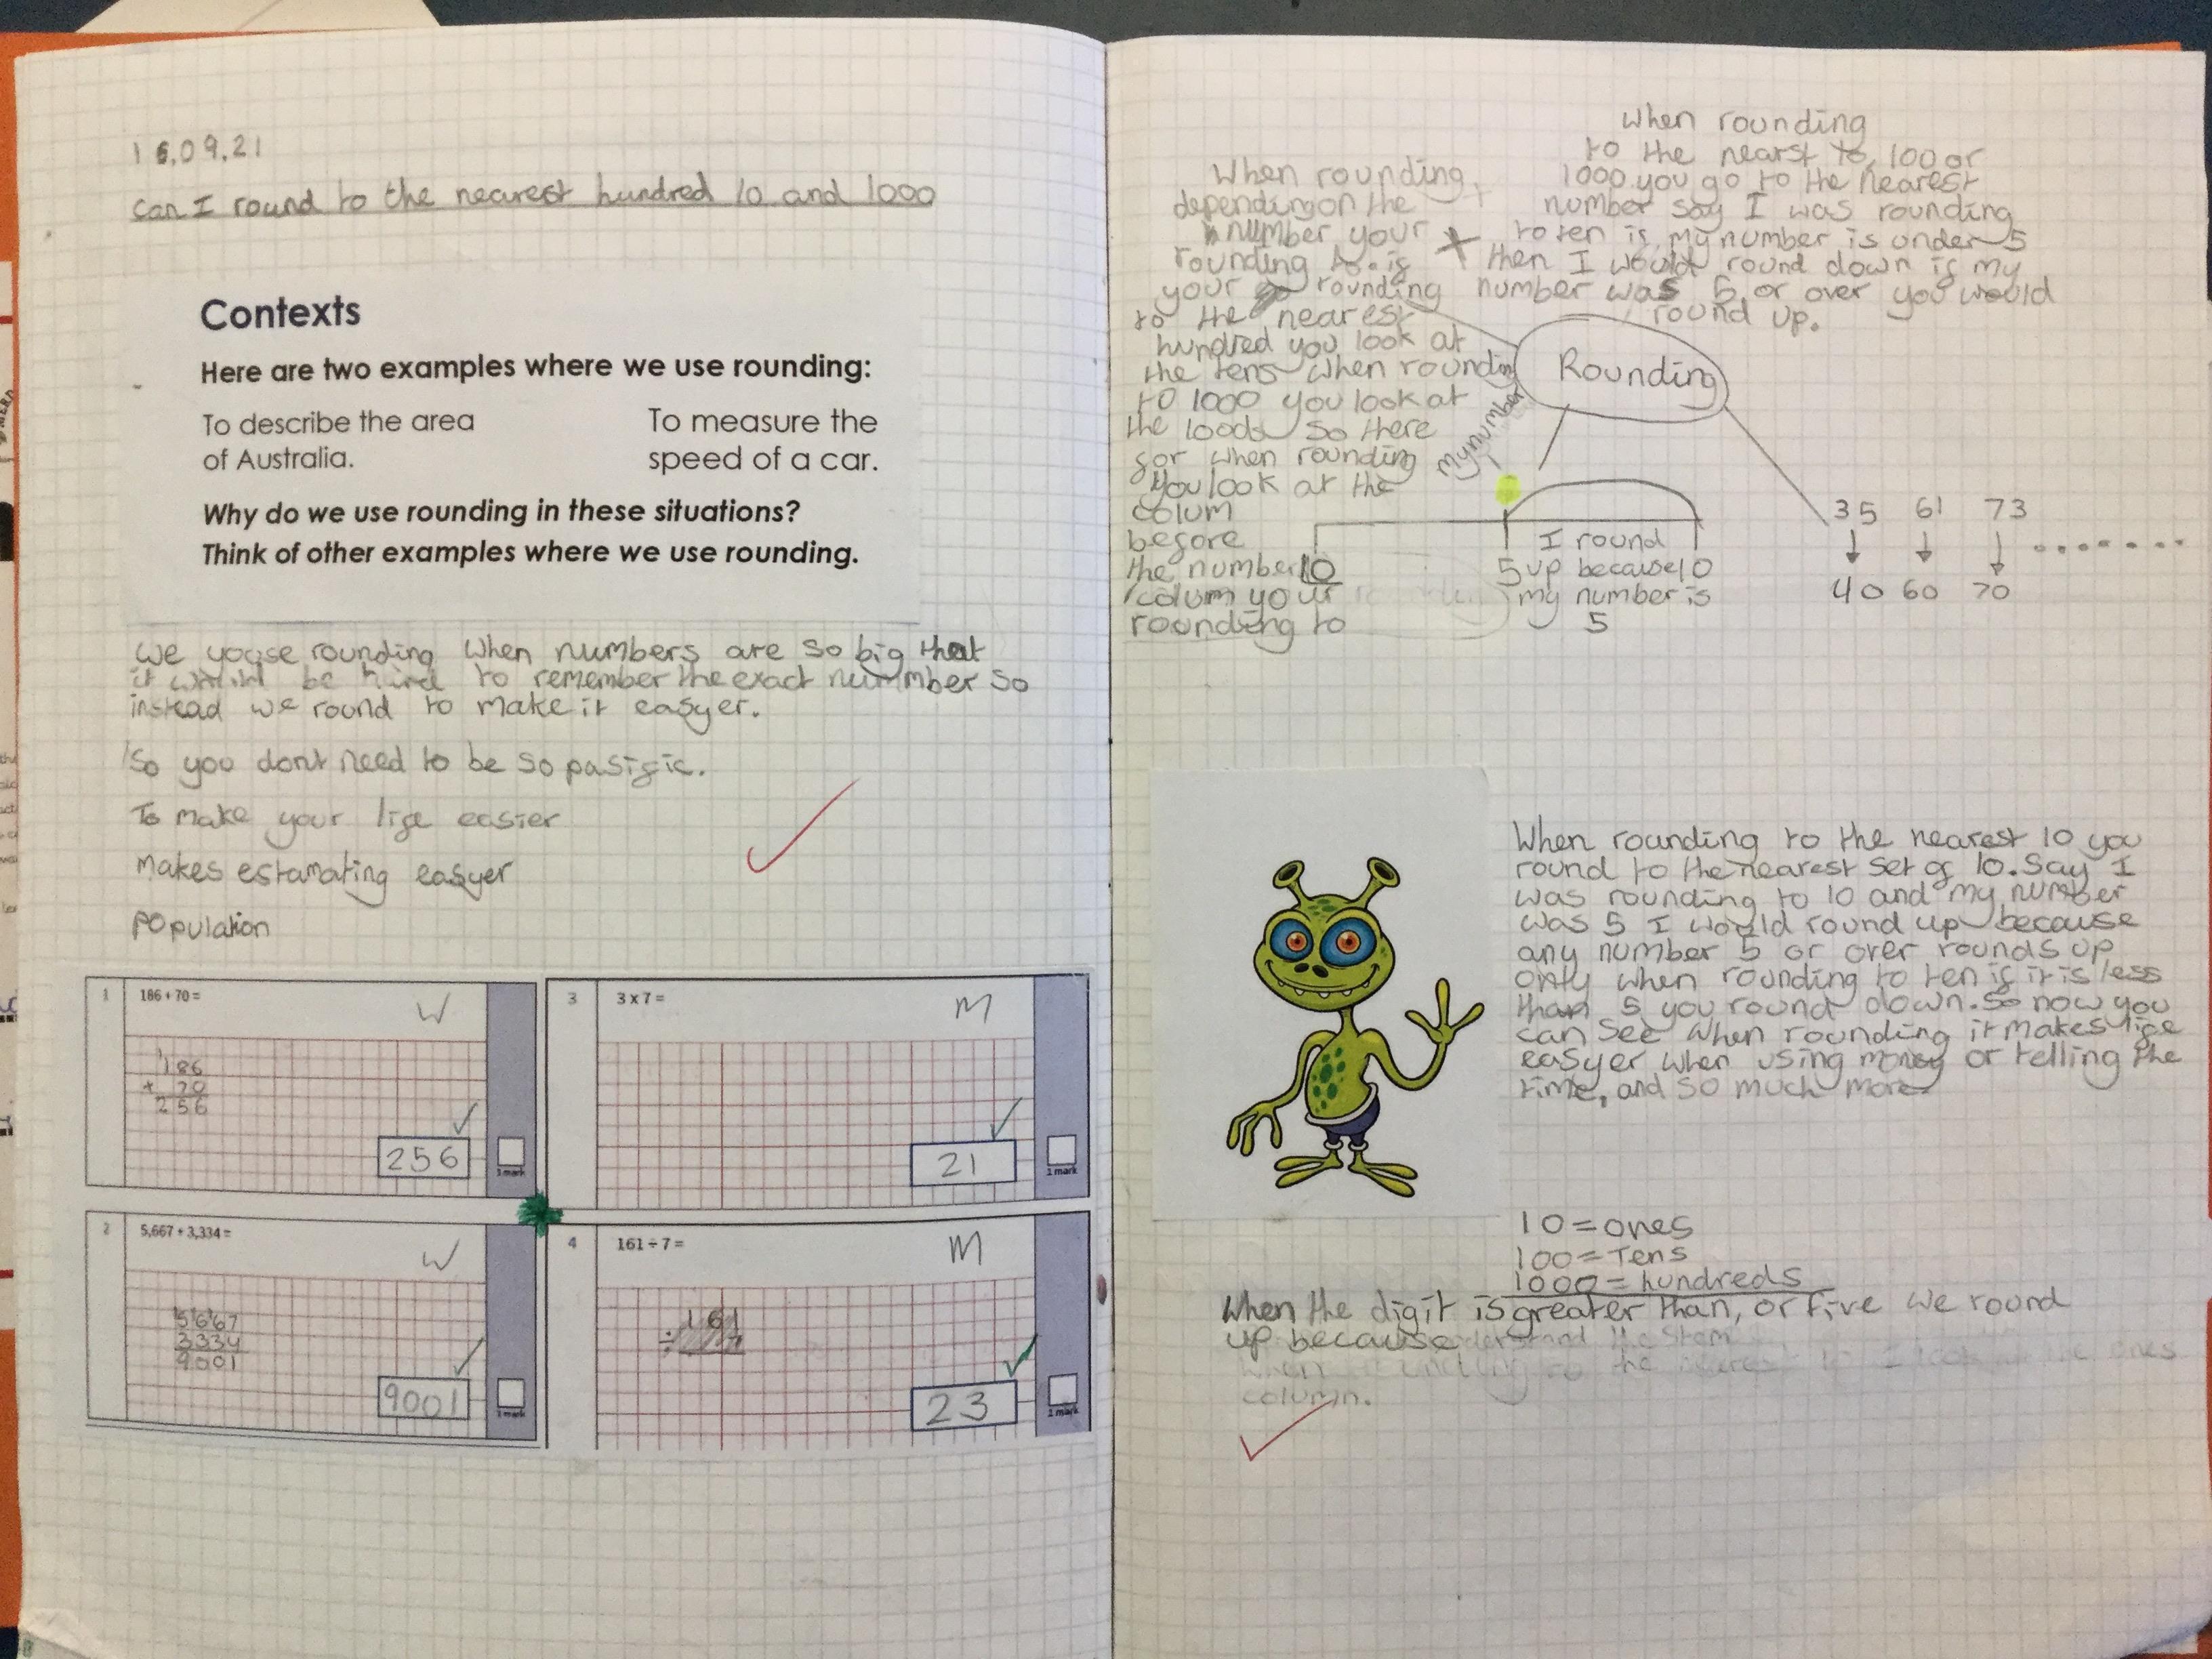 16.09.21
can I round to the nearest hundred 10 and 1000
Contexts
Here are two examples where we use rounding:
To describe the area
of Australia.
To measure the
speed of a car.
Why do we use rounding in these situations?
Think of other examples where we use rounding.
We yoouse rounding when numbers are so big that
it be hard to remember the exact number so
instead we round to make it easyer.
So you dont need to be so pasific.
To make your life easier
makes estamating easyer
population
1
186 + 70 =
W
186
+ 70
256
256
1 mark
2
5,667 + 3,334 =
W
5667
3334
9001
9001
1 mark
3
3 x 7 =
M
21
1 mark
4
161 ÷ 7 =
M
÷ 161
7
23
1 mark
When rounding
depending on the
number your
rounding to. if
your rounding
to the nearest
hundred you look at
the tens when rounding
to 1000 you look at
the 100ds so there
for when rounding
you look at the
colum
before
the number
colum your
rounding to
When rounding
to the nearst to, 100 or
1000 you go to the nearest
number say I was rounding
to ten if my number is under 5
then I would round down if my
number was 5 or over you would
round up.
Rounding
My number
10
5
10
I round
up because
my number is
5
35 61 73
40 60 70
When rounding to the nearest 10 you
round to the nearest set of 10. Say I
was rounding to 10 and my number
was 5 I would round up because
any number 5 or over rounds up
only when rounding to ten if it is less
than 5 you round down. So now you
can see when rounding it makes life
easyer when using money or telling the
time, and so much more
10 = ones
100 = Tens
1000 = hundreds
When the digit is greater than, or five we round
up because
the nearest I look the ones
column.